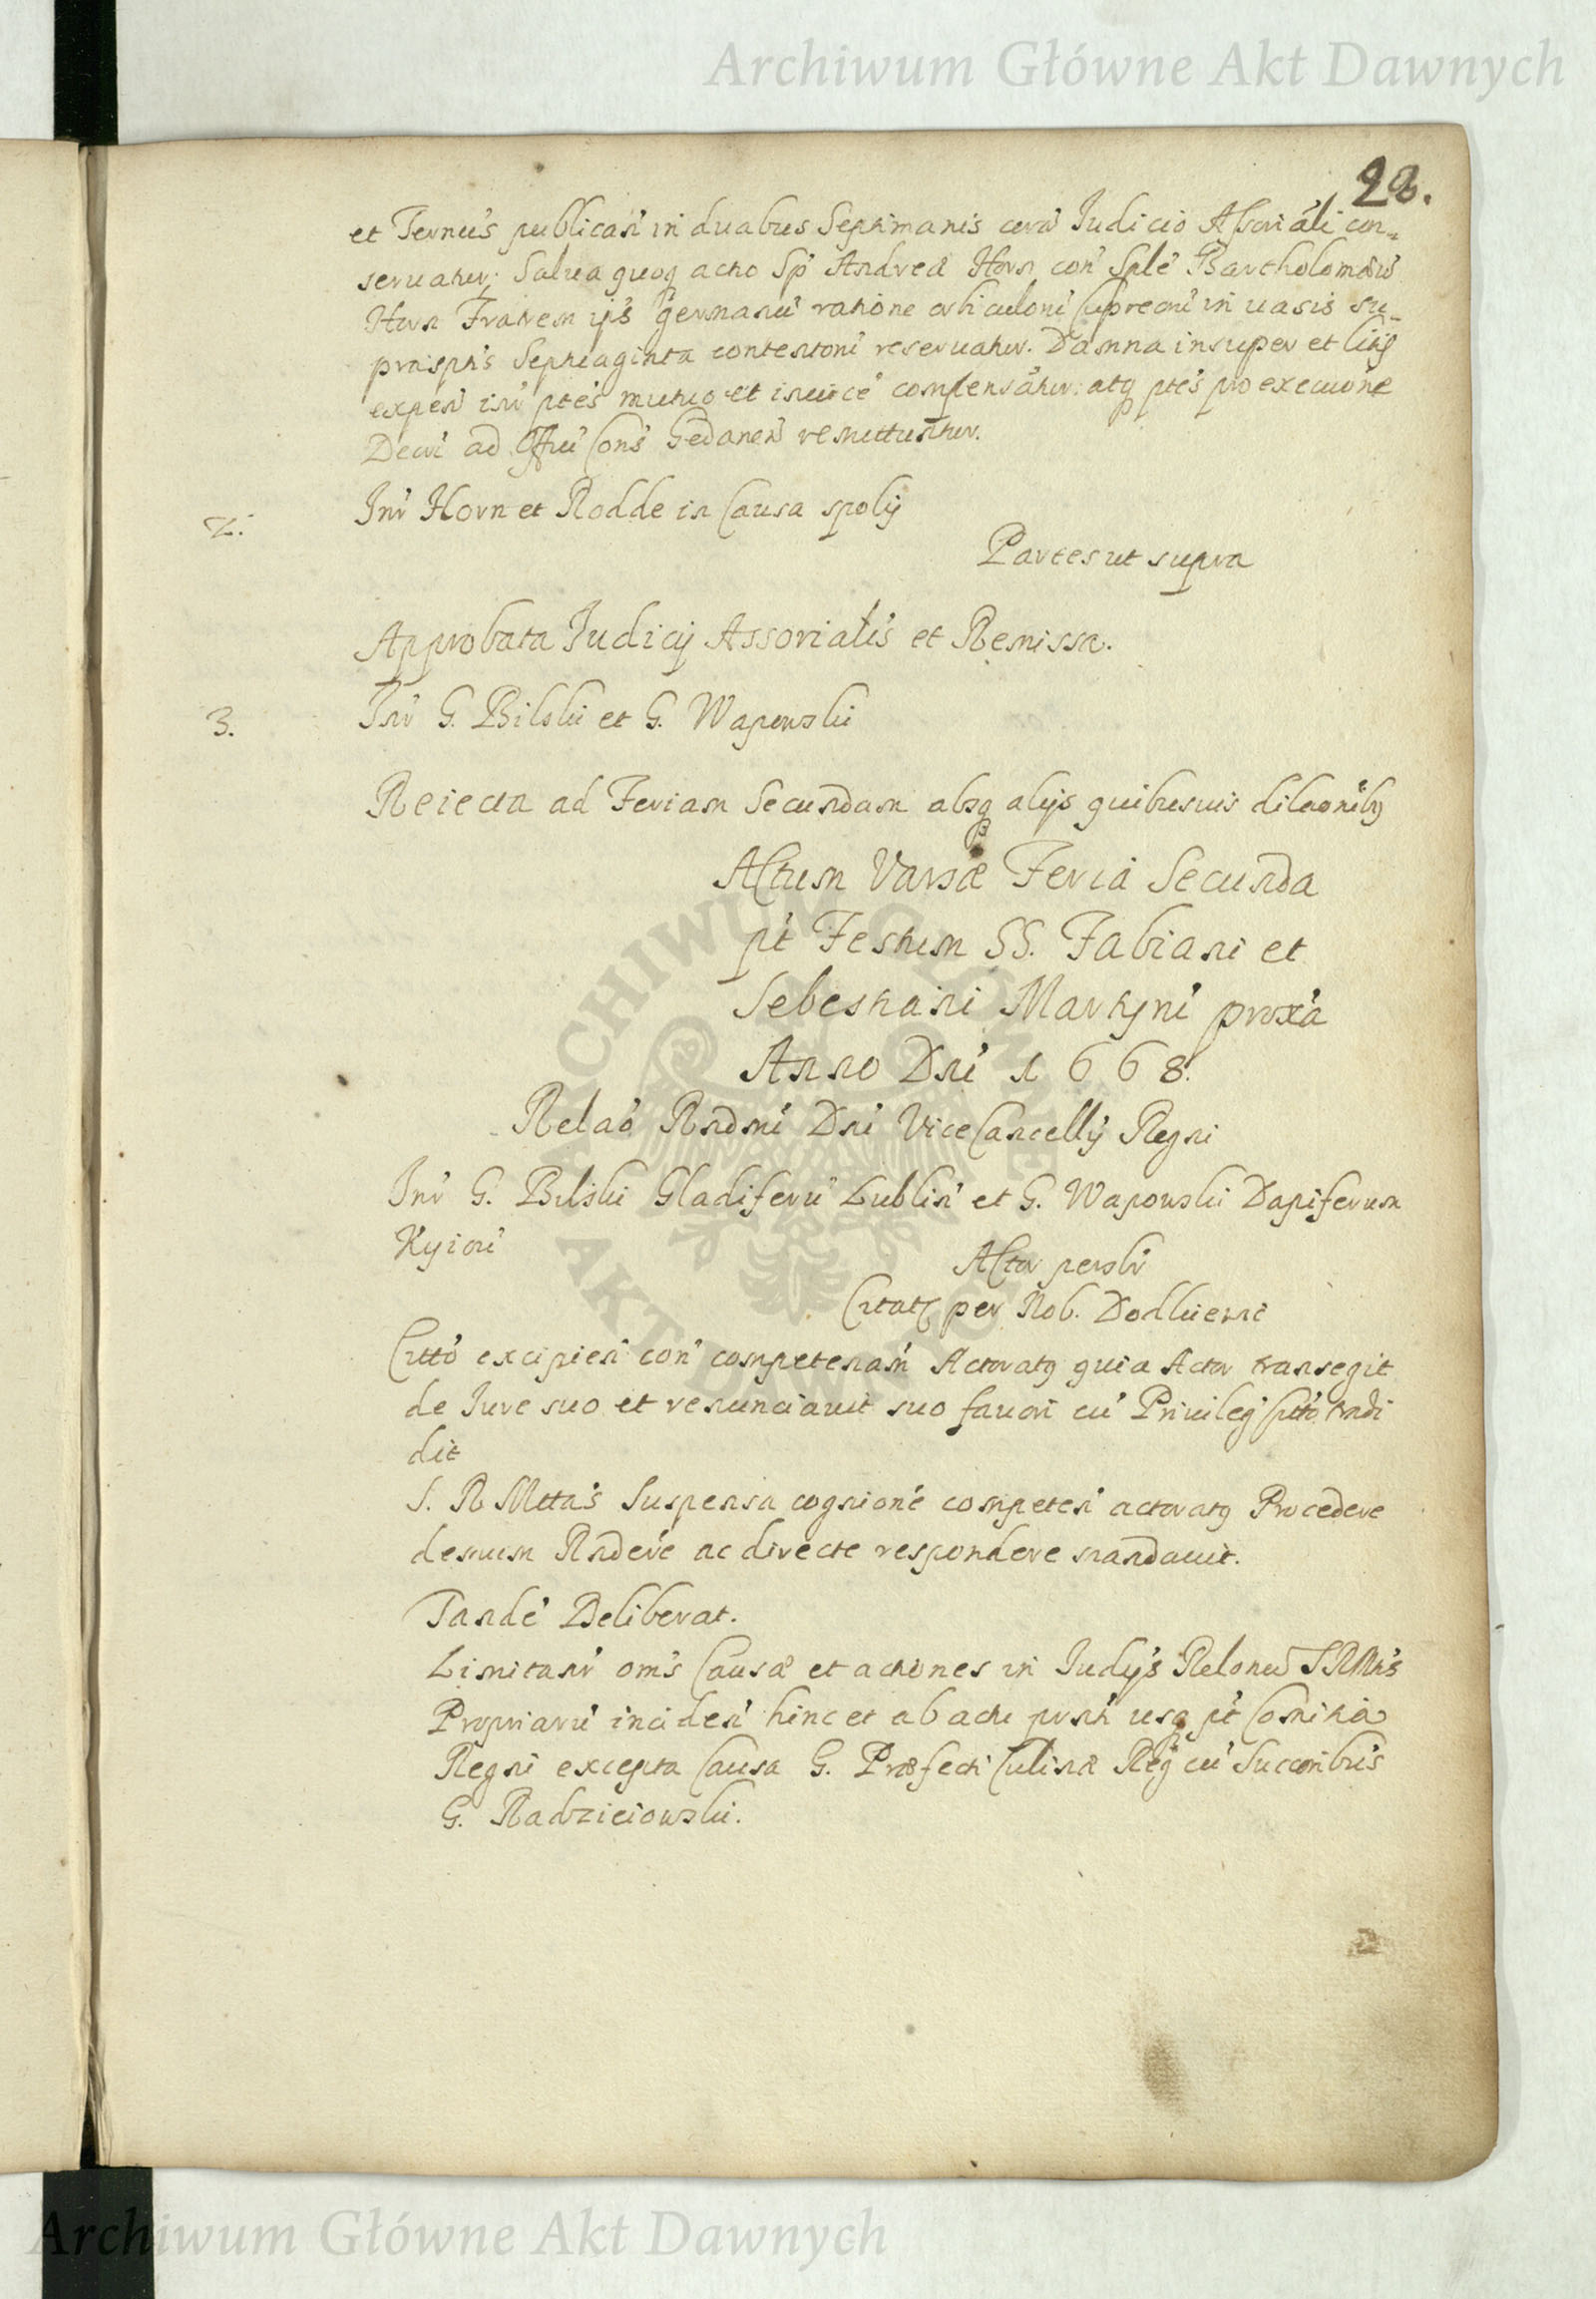 Archiwum Główne Akt Dawnych
28.
et Ternus publicań in duabus Septimanis corā Judicio Assoriali con-
seruatur; Salua quoq actio Sp Andreæ Horn con Splē Bartholomæū
Horn Fratrem ip̄s germanū ratione articuloru cupreoru in uasis su-
prasptis Septuaginta contentoru reseruatur. Damna insuper et litis
expen̄ inr̄ ptēs mutuo et inuicē compensātur: atq ptēs pro execuōne
Decrī ad Offiū Cons Gedanen̄ remittuntur.
2. Inr̄ Horn et Rodde in Causa spolij
Partes ut supra
Approbata Judicij Assorialis et Remissa.
3. Inr̄ G. Bilski et G. Wapowski
Reiecta ad Feriam Secundam absq alijs quibusuis dilaōnibq
Actum Varsæ Feria Secunda
pt̄ Festum SS. Fabiani et
Sebestiani Martyru proxā
Anno Dnī 1668.
Relaō Rndmī Dnī ViceCancellij Regni
Inr̄ G. Bilski Gladiferū Lublin̄ et G. Wapowski Dapiferum
Kyiou
Actor perslr̄
Citatq per Nob.
Cittō excipien̄ con competenām Actoratq quia Actor transegit
de Jure suo et renunciauit suo fauori cū Priuileg Cittō tradi
dit
S. R Mttas Suspensa cognionē competen̄ actoratq Procedere
demum Rndere ac directe respondere mandauit.
Tandē Deliberat.
Limitanr̄ oms Causæ et actiones in Judijs Relonū SRMtis
Propriarū inciden̄ hinc et ab actu prn̄ti usq pt̄ Comitia
Regni excepta Causa G. Præfecti Culinæ Reg cū Succoribus
G. Radzieiowski.
ARCHIWUM GŁÓWNE AKT DAWNYCH
Archiwum Główne Akt Dawnych